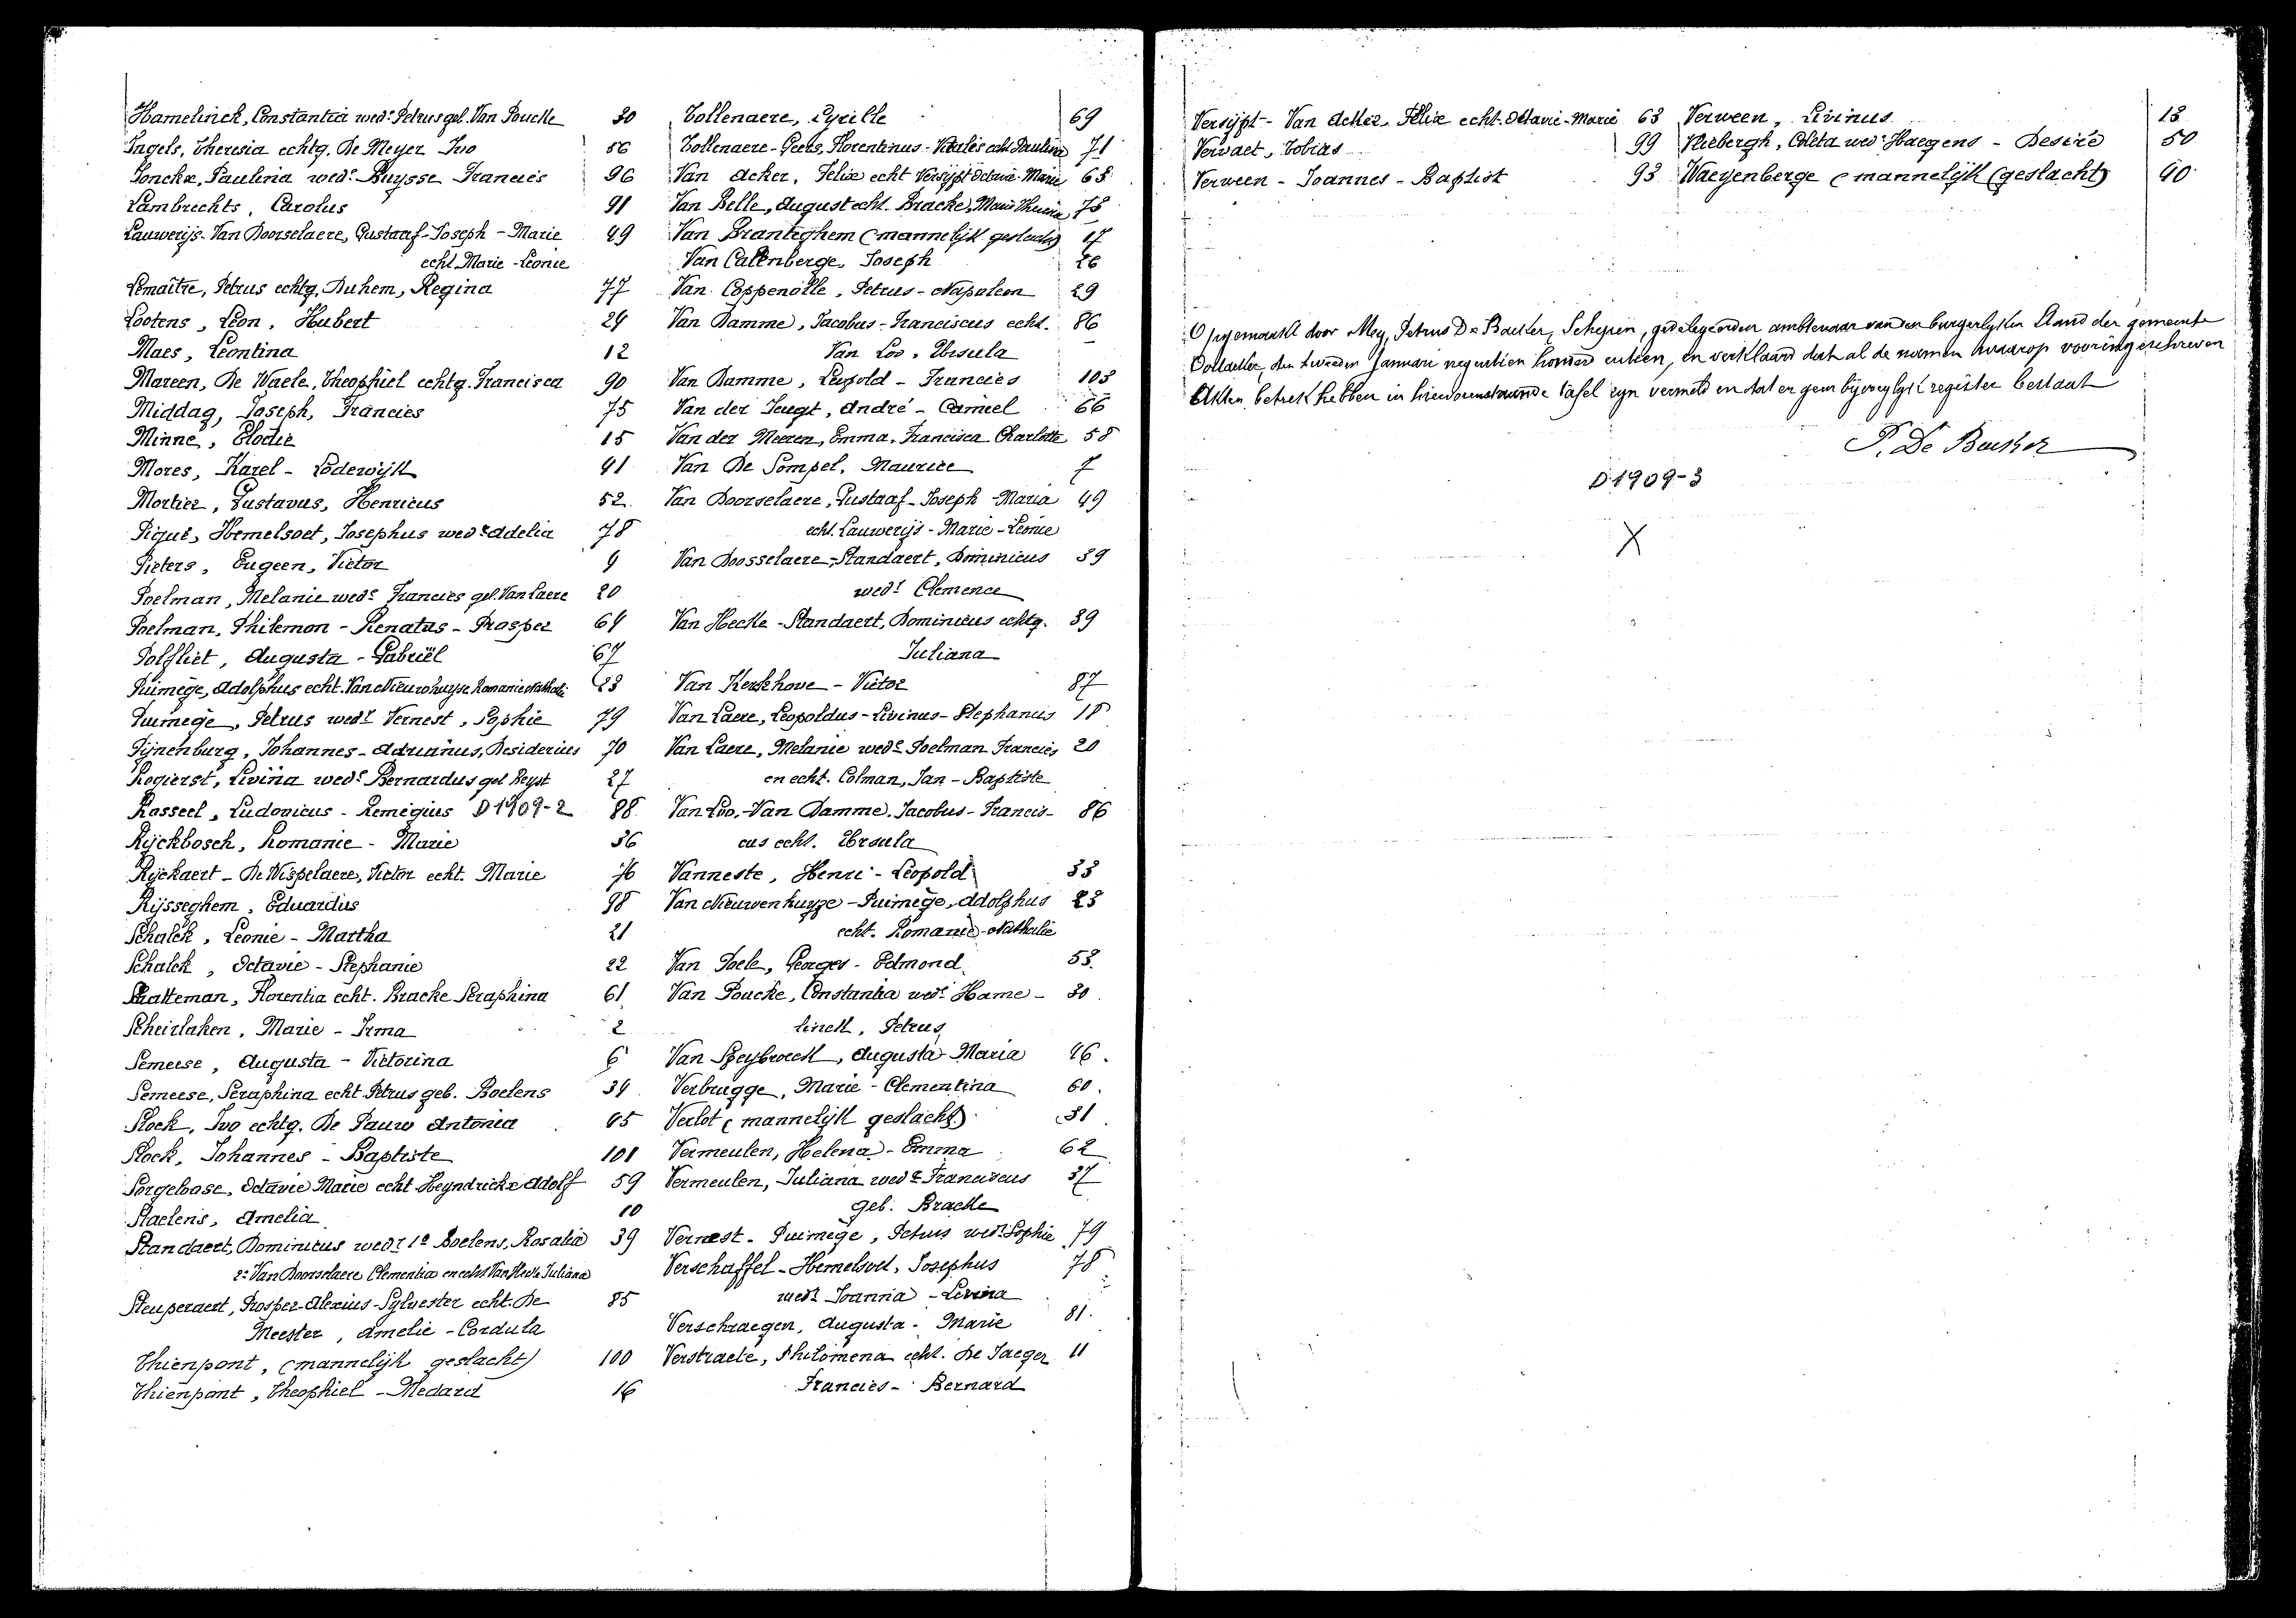 Hamelinck, Constantia wedᵉ Petrus gel. Van Poucke 30
Ingels, Theresia echtg. De Meyer Ivo 56
Jonckx, Paulina wedᵉ Buysse Francies 96
Lambrechts, Carolus 91
Lauwerijs-Van Doorselaere, Gustaaf-Joseph-Marie 49
echt Marie-Leonie
Lemaître, Petrus echtg. Duhem, Regina 77
Lootens, Léon, Hubert 24
Maes, Leontina 12
Mareen, De Waele, Theophiel echtg. Francisca 90
Middag, Joseph, Francies 75
Minne, Elodie 15
Mores, Karel-Lodewijk 41
Mortier, Gustavus, Henricus 52
Piqué, Hemelsoet, Josephus wedʳ Adelia 78
Pieters, Eugeen, Victor 9
Poelman, Melanie wedᵉ Francies gel. Van Laere 20
Poelman, Philemon-Renatus-Prosper 64
Polfliet, Augusta-Gabriël 67
Puimège, Adolphus echt. Van Nieuwhuyse Romanie Nathalie 23
Puimège, Petrus wedʳ Vernest, Sophie 79
Pijnenburg, Johannes-Adrianus, Desiderius 70
Rogierst, Livina wedᵉ Bernardus gel Reyst 27
Rasseel, Ludovicus-Remigius D1909-2 88
Rijckbosch, Romanie-Marie 36
Rijckaert-De Wispelaere, Victor echt. Marie 76
Rijsseghem, Eduardus 98
Schalck, Leonie-Martha 21
Schalck, Octavie-Stephanie 22
Schatteman, Florentia echt. Bracke Seraphina 61
Scheirlaken, Marie-Irma 2
Semeese, Augusta-Victorina 6
Semeese, Seraphina echt. Petrus geb. Boelens 34
Slock, Ivo echtg. De Pauw Antonia 45
Slock, Johannes-Baptiste 101
Sorgeloose, Octavie Marie echt Heyndrickx Adolf 59
Staelens, Amelia 10
Standaert, Dominicus wedʳ 1º Boelens, Rosalia 39
2º Van Doorselaere Clementia en echt Van Hecke Juliana
Steuperaert, Prosper-Alexius-Sylvester echt. De 85
Meester, Amelie-Cordula
Thienpont, (mannelijk geslacht) 100
Thienpont, Theophiel-Medard 16
Tollenaere, Cyrille 69
Tollenaere-Geers, Florentinus-Vitalis echt Paulina 71
Van Acker, Felix echt Versijpt Octavie-Marie 63
Van Belle, August echt. Bracke, Marie Theresia 73
Van Branteghem (mannelijk geslacht) 17
Van Calenberge, Joseph 26
Van Coppenolle, Petrus-Napoleon 29
Van Damme, Jacobus-Franciscus echt. 86
Van Loo, Ursula
Van Damme, Leopold-Francies 103
Van der Jeugt, André-Camiel 66
Van der Meeren, Emma, Francisca Charlotte 58
Van De Sompel, Maurice 7
Van Doorselaere, Gustaaf-Joseph-Maria 49
echt. Lauwerijs-Marie-Leonie
Van Doosselaere-Standaert, Dominicus 39
wedʳ Clemence
Van Hecke-Standaert, Dominicus echtg. 39
Juliana
Van Kerkhove-Victor 87
Van Laere, Leopoldus-Livinus-Stephanus 18
Van Laere, Melanie wedᵉ Poelman Francies 20
en echt. Colman, Jan-Baptiste
Van Loo-Van Damme, Jacobus-Francis- 86
cus echt. Ursula
Vanneste, Henri-Leopold 33
Van Nieuwenhuyze-Puimège, Adolphus 23
echt. Romanie-Nathalie
Van Poele, Georges-Edmond 53
Van Poucke, Constantia wedᵉ Hame- 30
linck, Petrus
Van Speybroeck, Augusta-Maria 46
Verbrugge, Marie-Clementina 60
Verlot (mannelijk geslacht) 31
Vermeulen, Helena-Emma 62
Vermeulen, Juliana wedᵉ Franciscus 37
geb. Bracke
Vernest-Puimège, Petrus wedʳ Sophie 79
Verschaffel-Hemelsoet, Josephus 78
wedʳ Joanna-Livina
Verschraegen, Augusta-Marie 81
Verstraete, Philomena echt. De Jaeger 11
Francies-Bernard
Versijpt-Van Acker, Felix echt. Octavie-Marie 63
Vervaet, Tobias 99
Verween-Joannes-Baptist 93
Verween, Livinus 13
Vliebergh, Coleta wedᵉ Haegens-Desiré 50
Waeyenberge (mannelijk (geslacht) 40
Opgemaakt door Mey, Petrus De Backer, Schepen, gedelegeerden ambtenaar van den burgerlijken Stand der gemeente
den tweeden Januari negentien honderd en tien, en verklaard dat al de namen waarop vooringeschreven
Akten betrek hebben in hiervorenstaande tafel zyn vermeld en dat er geen bijvoeglijk register bestaat
P. De Backer
D.1909-3
X